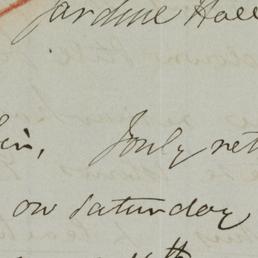 Jardine Hall
Sir, I only ret
on Saturday